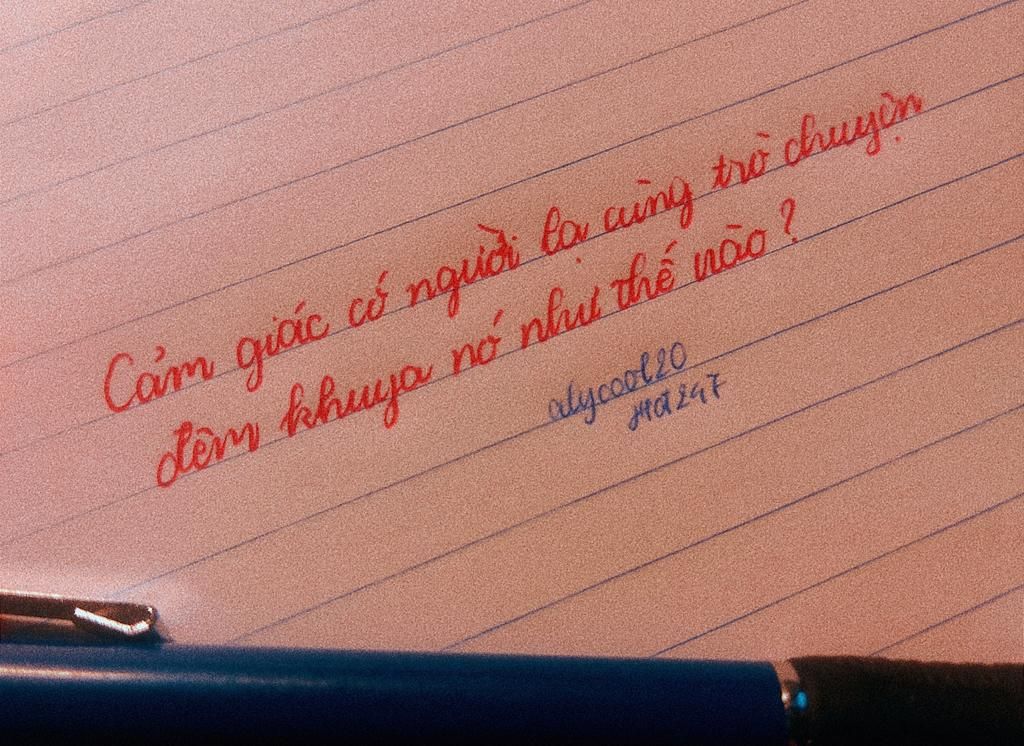 Cảm giác có người lạ cùng trò chuyện
đêm khuya nó như thế nào?
alycool20